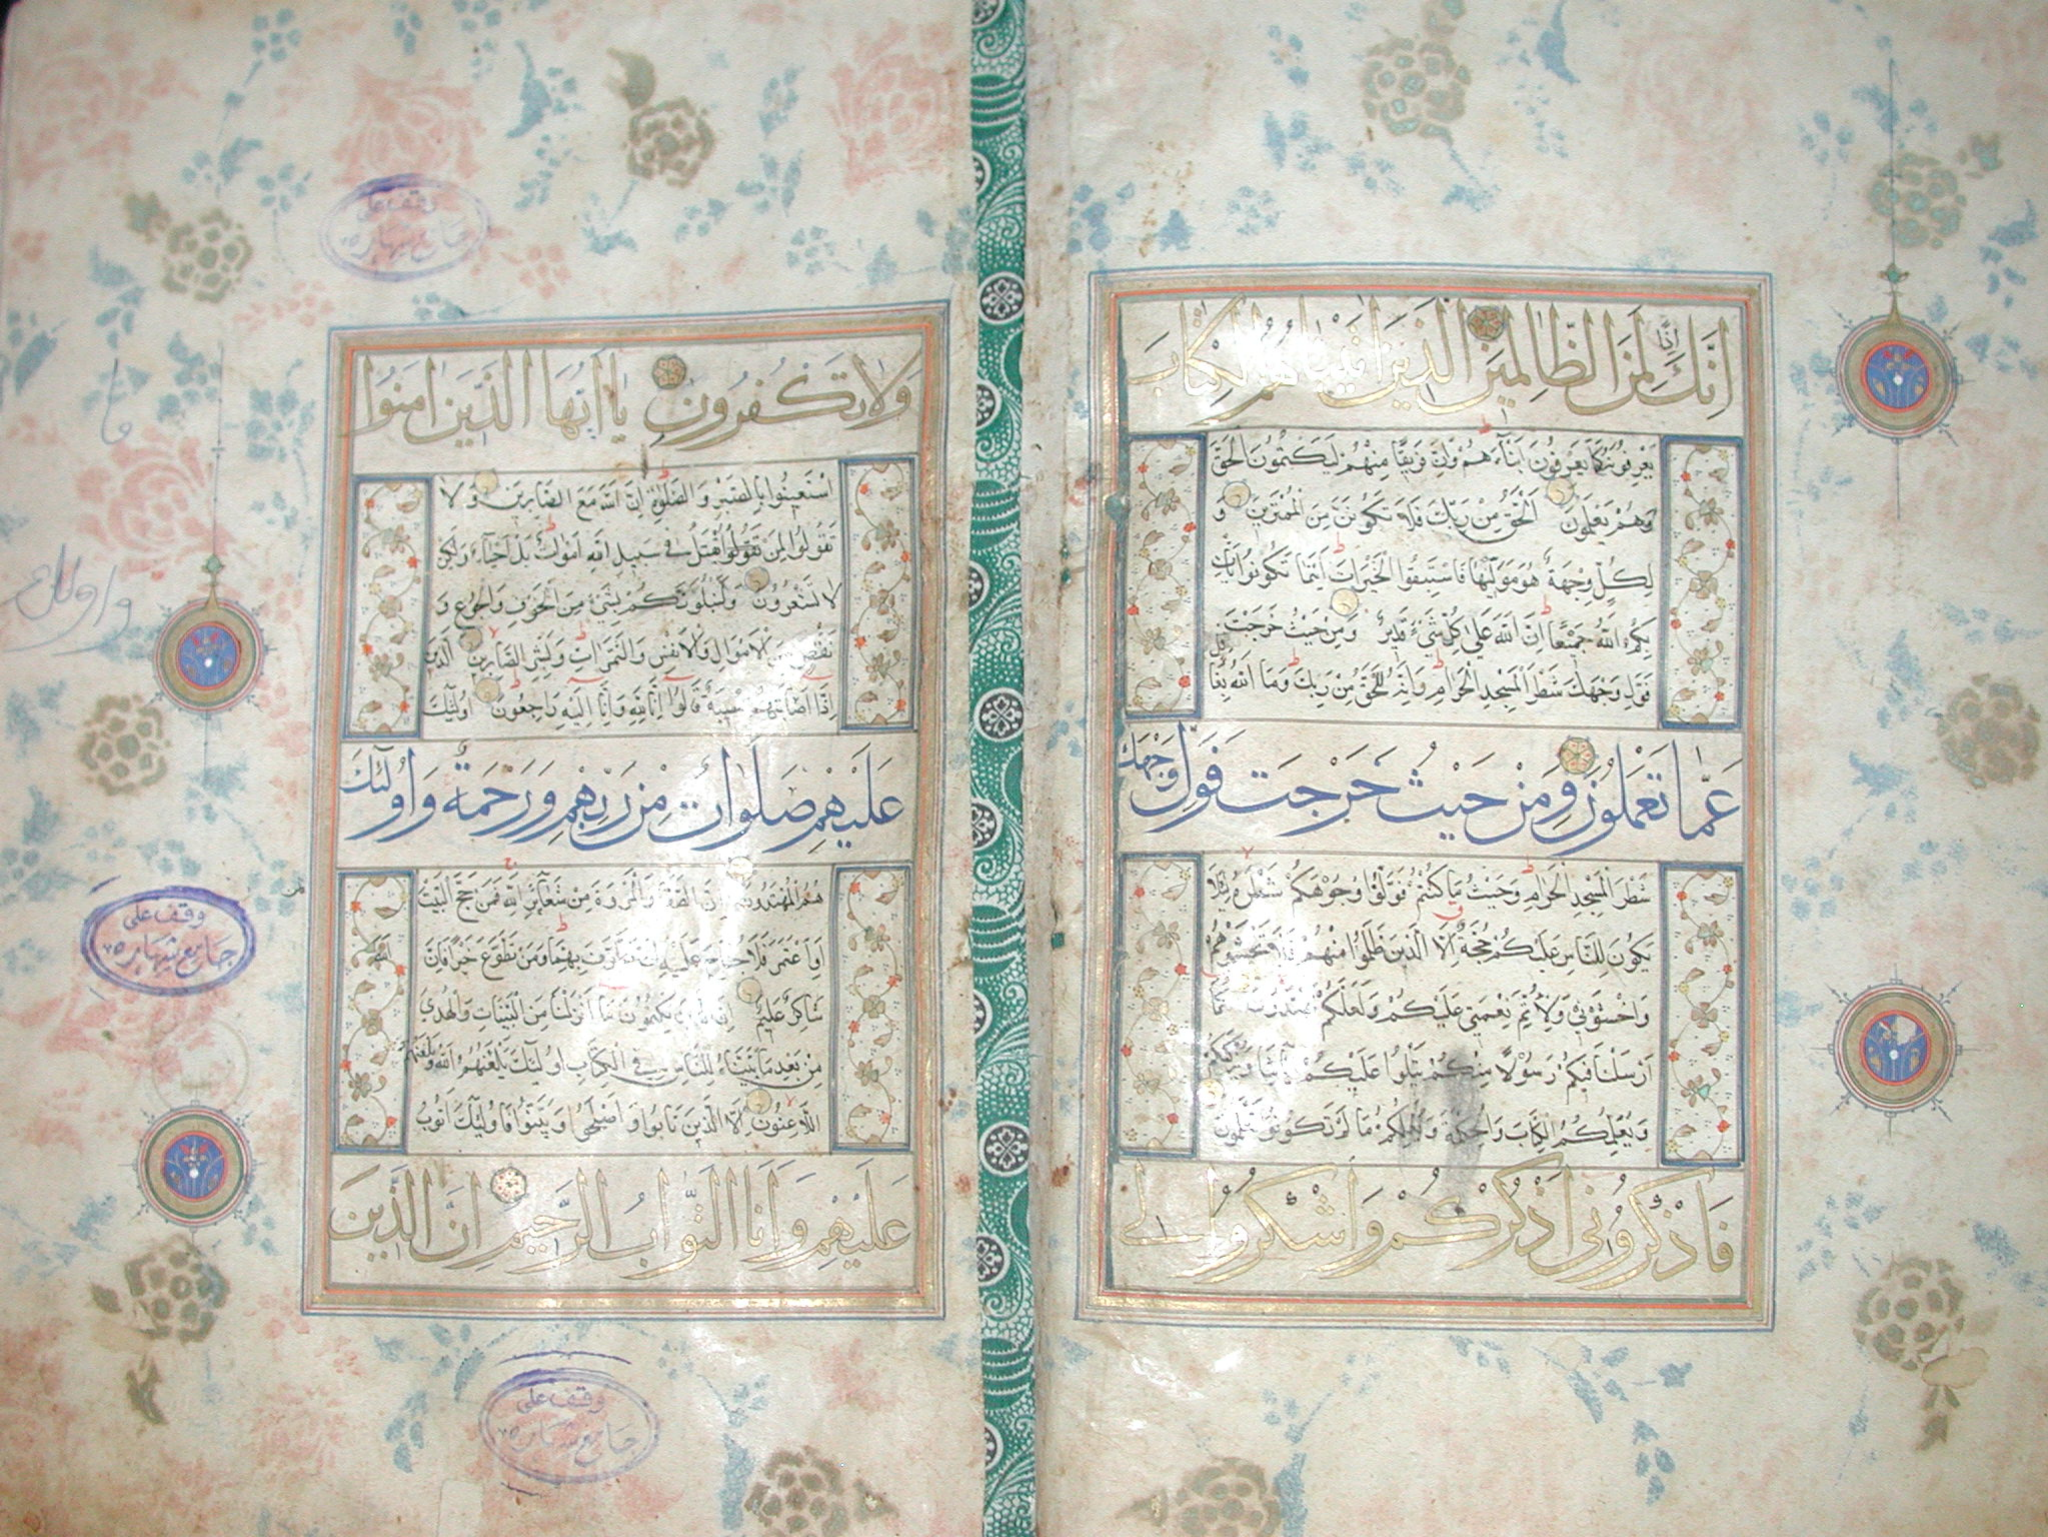 إنك إذا لمن الظالمين الذين آتيناهم الكتاب
يعرفونه كما يعرفون أبناءهم وإن فريقا منهم ليكتمون الحق
وهم يعلمون الحق من ربك فلا تكونن من الممترين و
لكل وجهة هو موليها فاستبقوا الخيرات أينما تكونوا يأت
بكم الله جميعا إن الله على كل شيء قدير ومن حيث خرجت
فول وجهك شطر المسجد الحرام وإنه للحق من ربك وما الله بغافل
عما تعملون ومن حيث خرجت فول وجهك
شطر المسجد الحرام وحيث ما كنتم فولوا وجوهكم شطره لئلا
يكون للناس عليكم حجة إلا الذين ظلموا منهم فلا تخشوهم
واخشوني ولأتم نعمتي عليكم ولعلكم تهتدون كما
أرسلنا فيكم رسولا منكم يتلوا عليكم آياتنا ويزكيكم
ويعلمكم الكتاب والحكمة ويعلمكم ما لم تكونوا تعلمون
فاذكروني أذكركم واشكروا لي
ولا تكفرون يا أيها الذين آمنوا
استعينوا بالصبر والصلوة إن الله مع الصابرين ولا
تقولوا لمن يقتل في سبيل الله أموات بل أحياء ولكن
لا تشعرون ولنبلونكم بشيء من الخوف والجوع و
نقص من الأموال والأنفس والثمرات وبشر الصابرين الذين
إذا أصابتهم مصيبة قالوا إنا لله وإنا إليه راجعون أولئك
عليهم صلوات من ربهم ورحمة وأولئك
هم المهتدون إن الصفا والمروة من شعائر الله فمن حج البيت
أو اعتمر فلا جناح عليه أن يطوف بهما ومن تطوع خيرا فإن
شاكر عليم إن الذين يكتمون ما أنزلنا من البينات والهدى
من بعد ما بيناه للناس في الكتاب أولئك يلعنهم الله ويلعنهم
اللاعنون إلا الذين تابوا وأصلحوا وبينوا فأولئك أتوب
عليهم وأنا التواب الرحيم إن الذين
وقف على
جامع شهاره
وقف على
جامع شهاره
وقف على
جامع شهاره